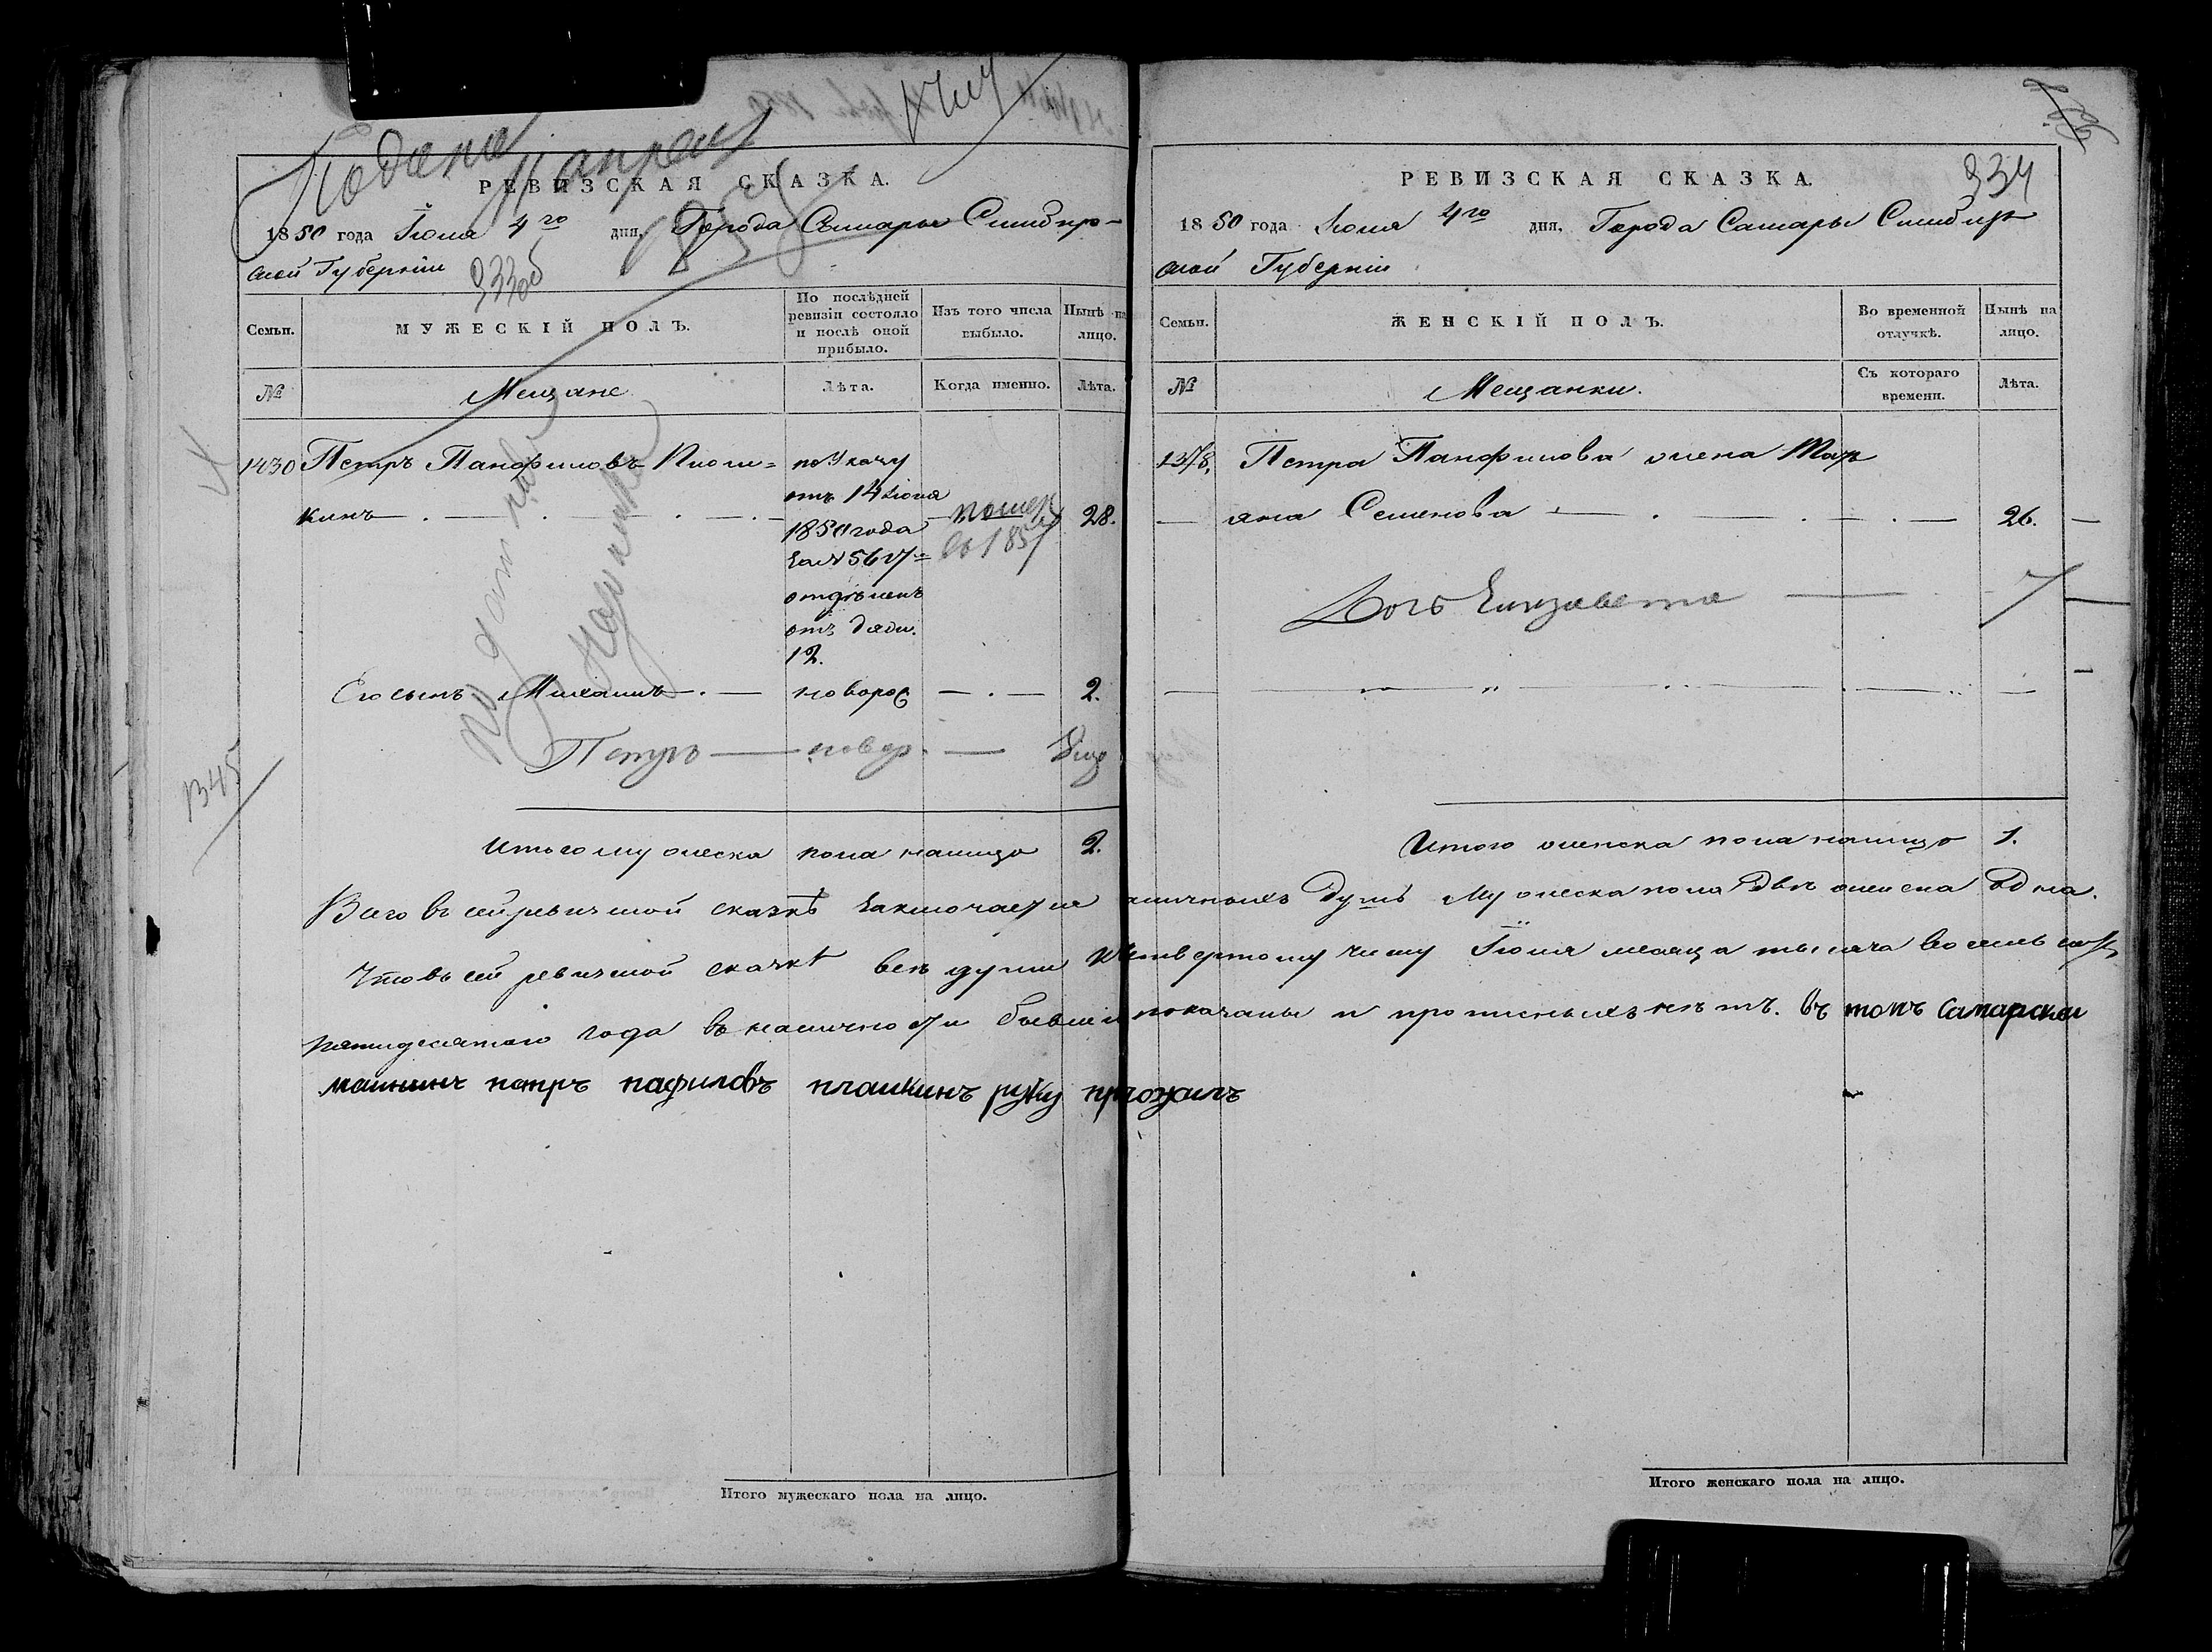 Подана 11 апреля
1858
РЕВИЗСКАЯ СКАЗКА.
1850 года Іюня 4го дня, Города Самары Симбир-
ской Губерніи
933об
Семьи. МУЖЕСКІЙ ПОЛЪ. По послѣдней ревизіи состояло и послѣ оной прибыло. Изъ того числа выбыло. Нынѣ на лицо.
№ Мещане Лѣта. Когда именно. Лѣта.
1430 Петръ Панфиловъ
кинъ 28.
по Указу
отъ 14 Іюня
1850 года
за № 5617
отдѣленъ
отъ дяди.
12.
помер
въ 1857
Его сынъ Михаилъ новорож 2.
Петръ новор.
1345
Итого мужеска пола налицо 2.
РЕВИЗСКАЯ СКАЗКА.
934
1850 года Іюня 4го дня, Города Самары Симбир
ской Губерніи
Семьи. ЖЕНСКІЙ ПОЛЪ. Во временной отлучкѣ. Нынѣ на лицо.
№ Мещанки. Съ котораго времени. Лѣта.
1378. Петра Панфилова жена Марь
яна Семенова 26.
Дочь Елизавета 7
Итого женска пола налицо 1.
Всего въ сей ревизской сказкѣ заключается наличныхъ душъ мужеска пола двѣ женска одна.
Что въ сей ревизской сказкѣ всѣ души къ четвертому числу Іюня месяца тысяча восемь сотъ
пятидесятаго года въ наличности бывшіе показаны и прописныхъ нѣтъ. въ томъ самарской
петръ пафиловъ плаикинъ руку
Итого мужескаго пола на лицо.
Итого женскаго пола на лицо.